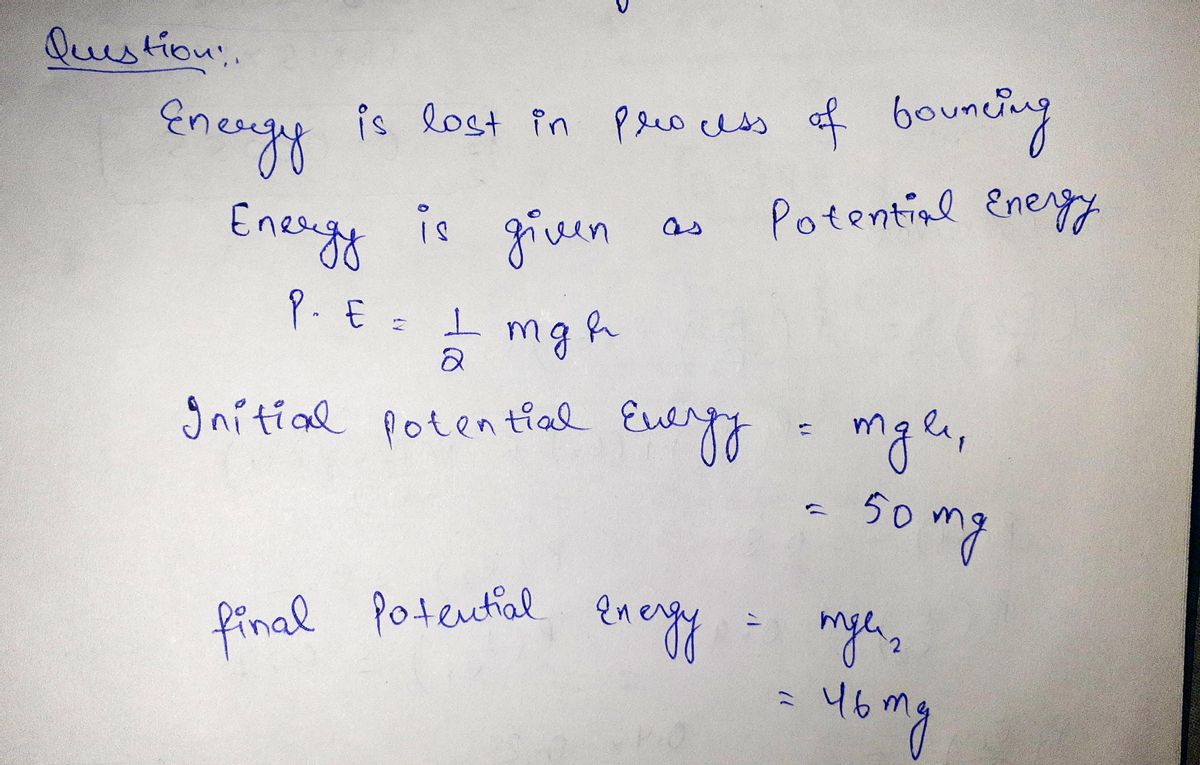 Question:.
Energy is lost in process of bouncing
Energy is given as Potential Energy
P. E = 1/2 mgh
Initial potential Energy = mgh₁
= 50 mg
final Potential Energy = mgh₂
= 46 mg